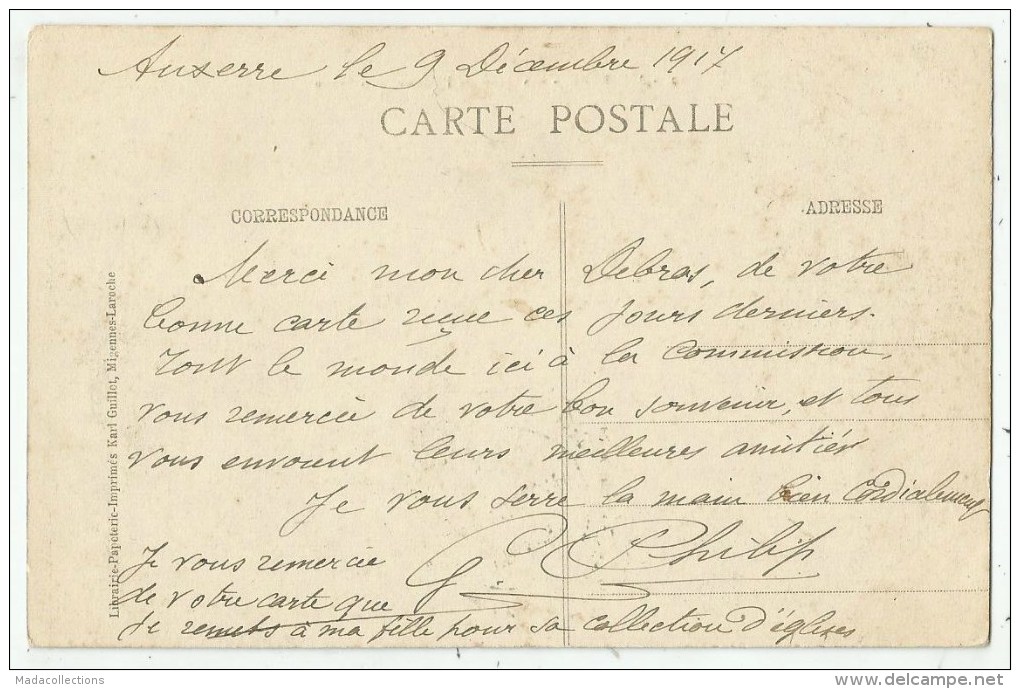 Auxerre le 9 Décembre 1917
CARTE POSTALE
CORRESPONDANCE
ADRESSE
Merci mon cher Debras, de votre
bonne carte reçue ces jours derniers.
Tout le monde ici à la Commission,
vous remercie de votre bon souvenir, et tous
vous envoient leurs meilleures amitiés
Je vous serre la main bien cordialement
G. Philip
Je vous remercie
de votre carte que
je remets à ma fille pour sa collection d'églises
Librairie-Papeterie-Imprimés Karl Guillot, Migennes-Laroche
Madacollections
www.delcampe.net